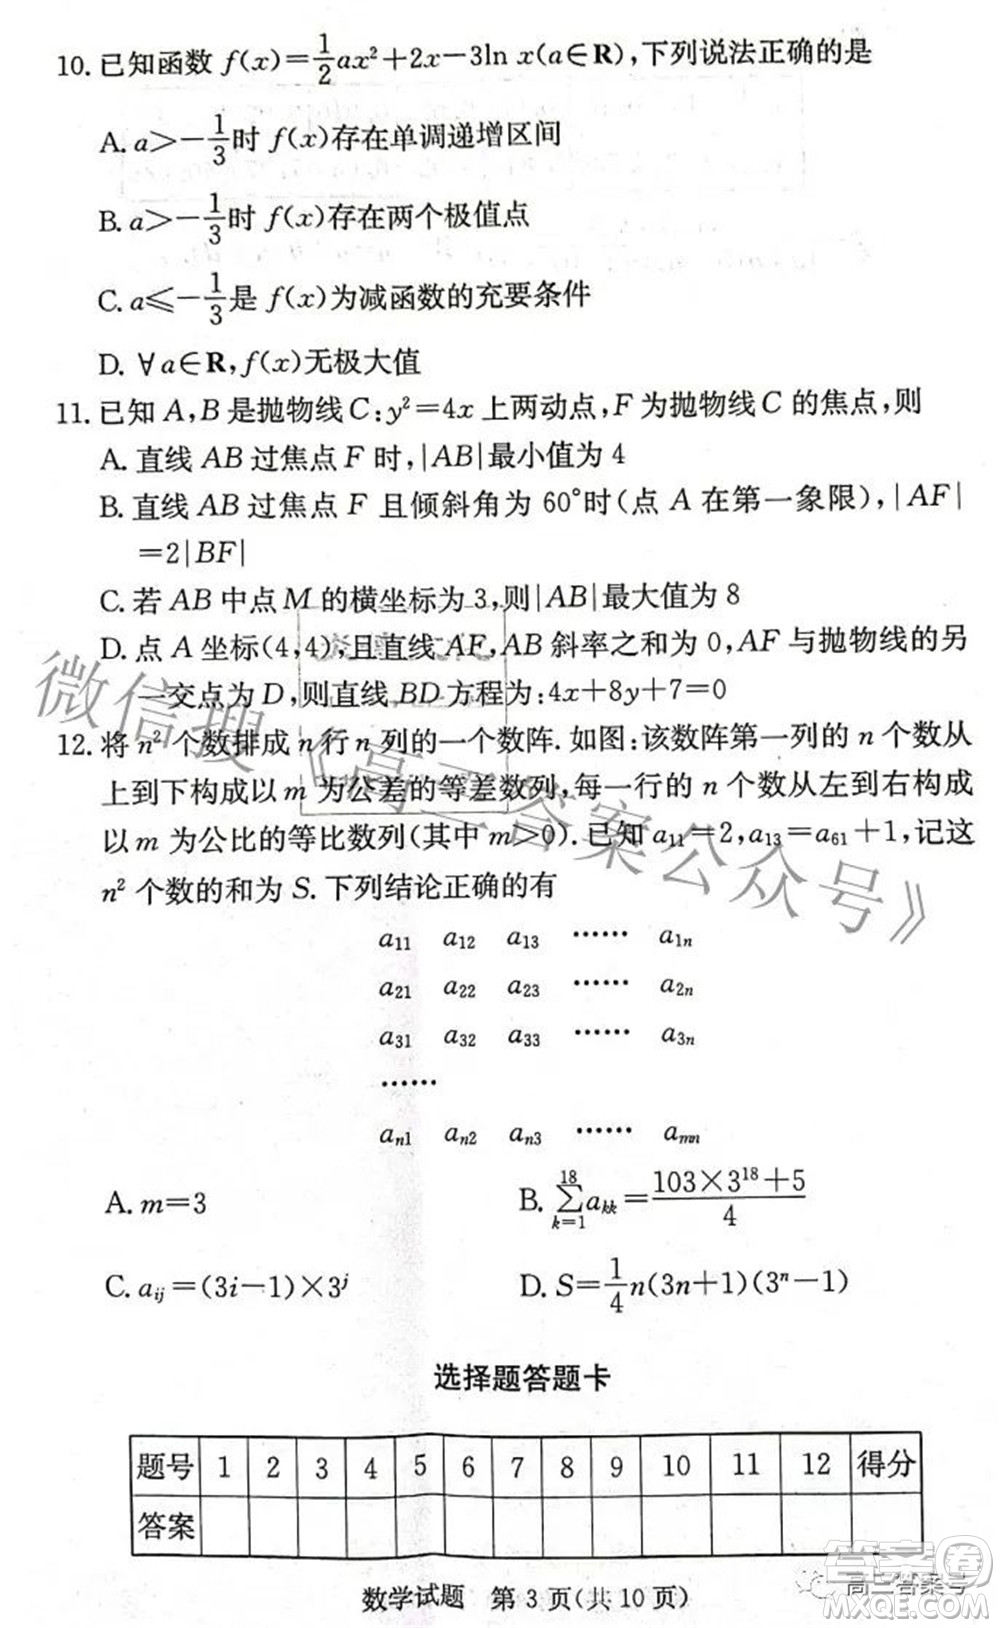 10. 已知函数 f(x)=1/2ax²+2x-3ln x(a∈R),下列说法正确的是
A. a>-1/3时 f(x)存在单调递增区间
B. a>-1/3时 f(x)存在两个极值点
C. a≤-1/3是 f(x)为减函数的充要条件
D. ∀a∈R,f(x)无极大值
11. 已知 A,B 是抛物线 C:y²=4x 上两动点,F 为抛物线 C 的焦点,则
A. 直线 AB 过焦点 F 时,|AB|最小值为 4
B. 直线 AB 过焦点 F 且倾斜角为 60°时(点 A 在第一象限),|AF|
=2|BF|
C. 若 AB 中点 M 的横坐标为 3,则|AB|最大值为 8
D. 点 A 坐标(4,4),且直线 AF,AB 斜率之和为 0,AF 与抛物线的另
一交点为 D,则直线 BD 方程为:4x+8y+7=0
12. 将 n² 个数排成 n 行 n 列的一个数阵. 如图:该数阵第一列的 n 个数从
上到下构成以 m 为公差的等差数列,每一行的 n 个数从左到右构成
以 m 为公比的等比数列(其中 m>0). 已知 a₁₁=2,a₁₃=a₆₁+1,记这
n² 个数的和为 S. 下列结论正确的有
a₁₁ a₁₂ a₁₃ …… a₁ₙ
a₂₁ a₂₂ a₂₃ …… a₂ₙ
a₃₁ a₃₂ a₃₃ …… a₃ₙ
……
aₙ₁ aₙ₂ aₙ₃ …… aₘₙ
A. m=3 B. ∑(k=1→18) a_kk=(103×3¹⁸+5)/4
C. a_ij=(3i-1)×3^j D. S=1/4n(3n+1)(3ⁿ-1)
选择题答题卡
题号 1 2 3 4 5 6 7 8 9 10 11 12 得分
答案
数学试题 第 3 页(共 10 页)
微信搜《高三答案公众号》
高三答案号
答案圈
MXQE.COM